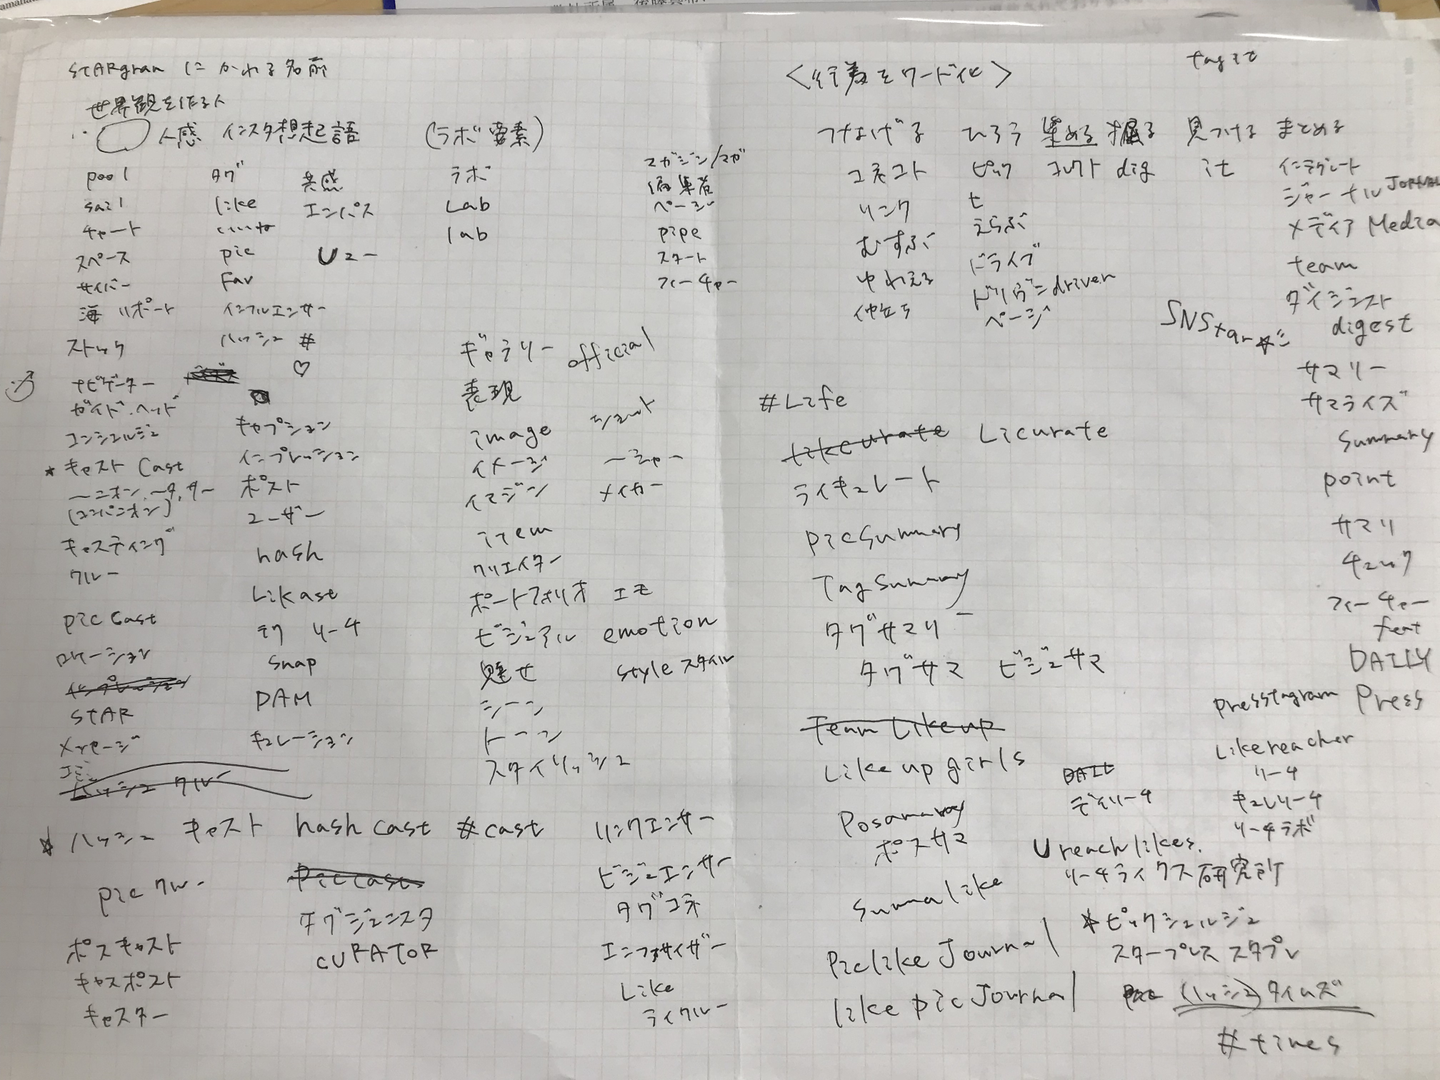 STARgramにかわる名前
世界観を作る人
人感 インスタ想起語 (ラボ要素)
pool
sail
チャート
スペース
サイバー
海 リポート
ストック
ナビゲーター
ガイド・ヘッド
コンシェルジュ
* キャスト Cast
〜ニオン、〜タ、サー
(コンパニオン)
キャスティング
クルー
pic Cast
ロケーション
STAR
メッセージ
タグ
like
いいね
pic
Fav
インフルエンサー
ハッシュ #
♡
キャプション
インプレッション
ポスト
ユーザー
hash
Likast
モク リーチ
Snap
DAM
キュレーション
共感
エンパス
Uユー
ラボ
Lab
lab
マガジン/マガ
編集者
ページ
pipe
スタート
フィーチャー
ギャラリー official
表現
image ショット
イメージ 〜シャー
イマジン メイカー
item
クリエイター
ポートフォリオ エモ
ビジュアル emotion
魅せ style スタイル
シーン
トーン
スタイリッシュ
ハッシュ クルー
* ハッシュ キャスト hash cast #cast リンクエンサー
pic クルー
Pic cast
ビジュエンサー
タグジェニスタ
タグコネ
ポスキャスト
CURATOR
エンファサイザー
キャスポスト
Like
キャスター
ライクルー
<行為をワード化>
tag it
つなげる ひろう 集める 掘る 見つける まとめる
コネコト ピック コレクト dig it インテグレート
リンク
むすぶ
ゆわえる
仲立ち
t
えらぶ
ドライブ
ドリヴン driver
ページ
ジャーナル JOURNAL
メディア Media
team
ダイジェスト
digest
SNStar☆ミ
サマリー
サマライズ
summary
point
サマリ
チェック
フィーチャー
feat
DAILY
Press
#Life
Likcurate Licurate
ライキュレート
picsummary
Tag Summary
タグサマリー
タグサマ ビジュサマ
Team Like up
Like up girls
Posamary
ポスサマ
sumalike
Piclike Journal
like pic Journal
presstagram
Likereacher
リーチ
キュレリーチ
リーチラボ
DAIL
デイリーチ
U reach likes.
リーチライクス研究所
* ピックシェルジュ
スタープレス スタプレ
(ハッシュ)タイムズ
#times